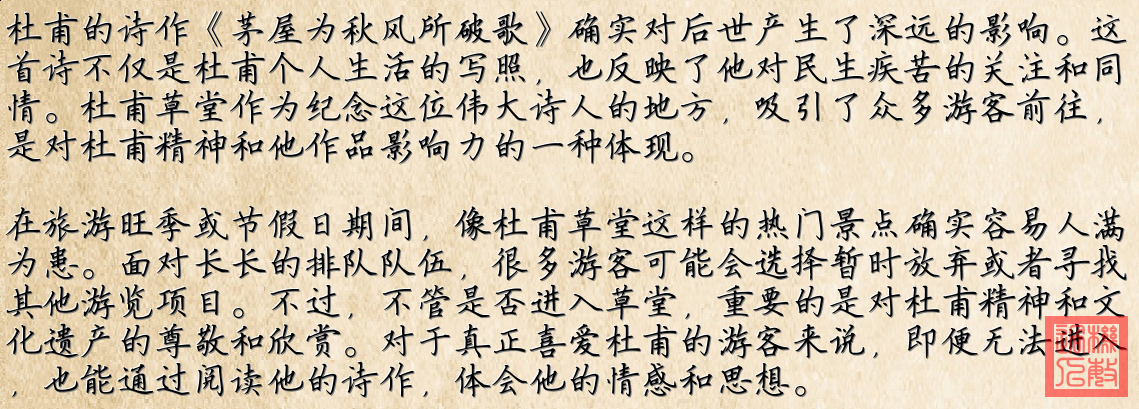 杜甫的诗作《茅屋为秋风所破歌》确实对后世产生了深远的影响。这
首诗不仅是杜甫个人生活的写照，也反映了他对民生疾苦的关注和同
情。杜甫草堂作为纪念这位伟大诗人的地方，吸引了众多游客前往，
是对杜甫精神和他作品影响力的一种体现。
在旅游旺季或节假日期间，像杜甫草堂这样的热门景点确实容易人满
为患。面对长长的排队队伍，很多游客可能会选择暂时放弃或者寻找
其他游览项目。不过，不管是否进入草堂，重要的是对杜甫精神和文
化遗产的尊敬和欣赏。对于真正喜爱杜甫的游客来说，即便无法进入
，也能通过阅读他的诗作，体会他的情感和思想。